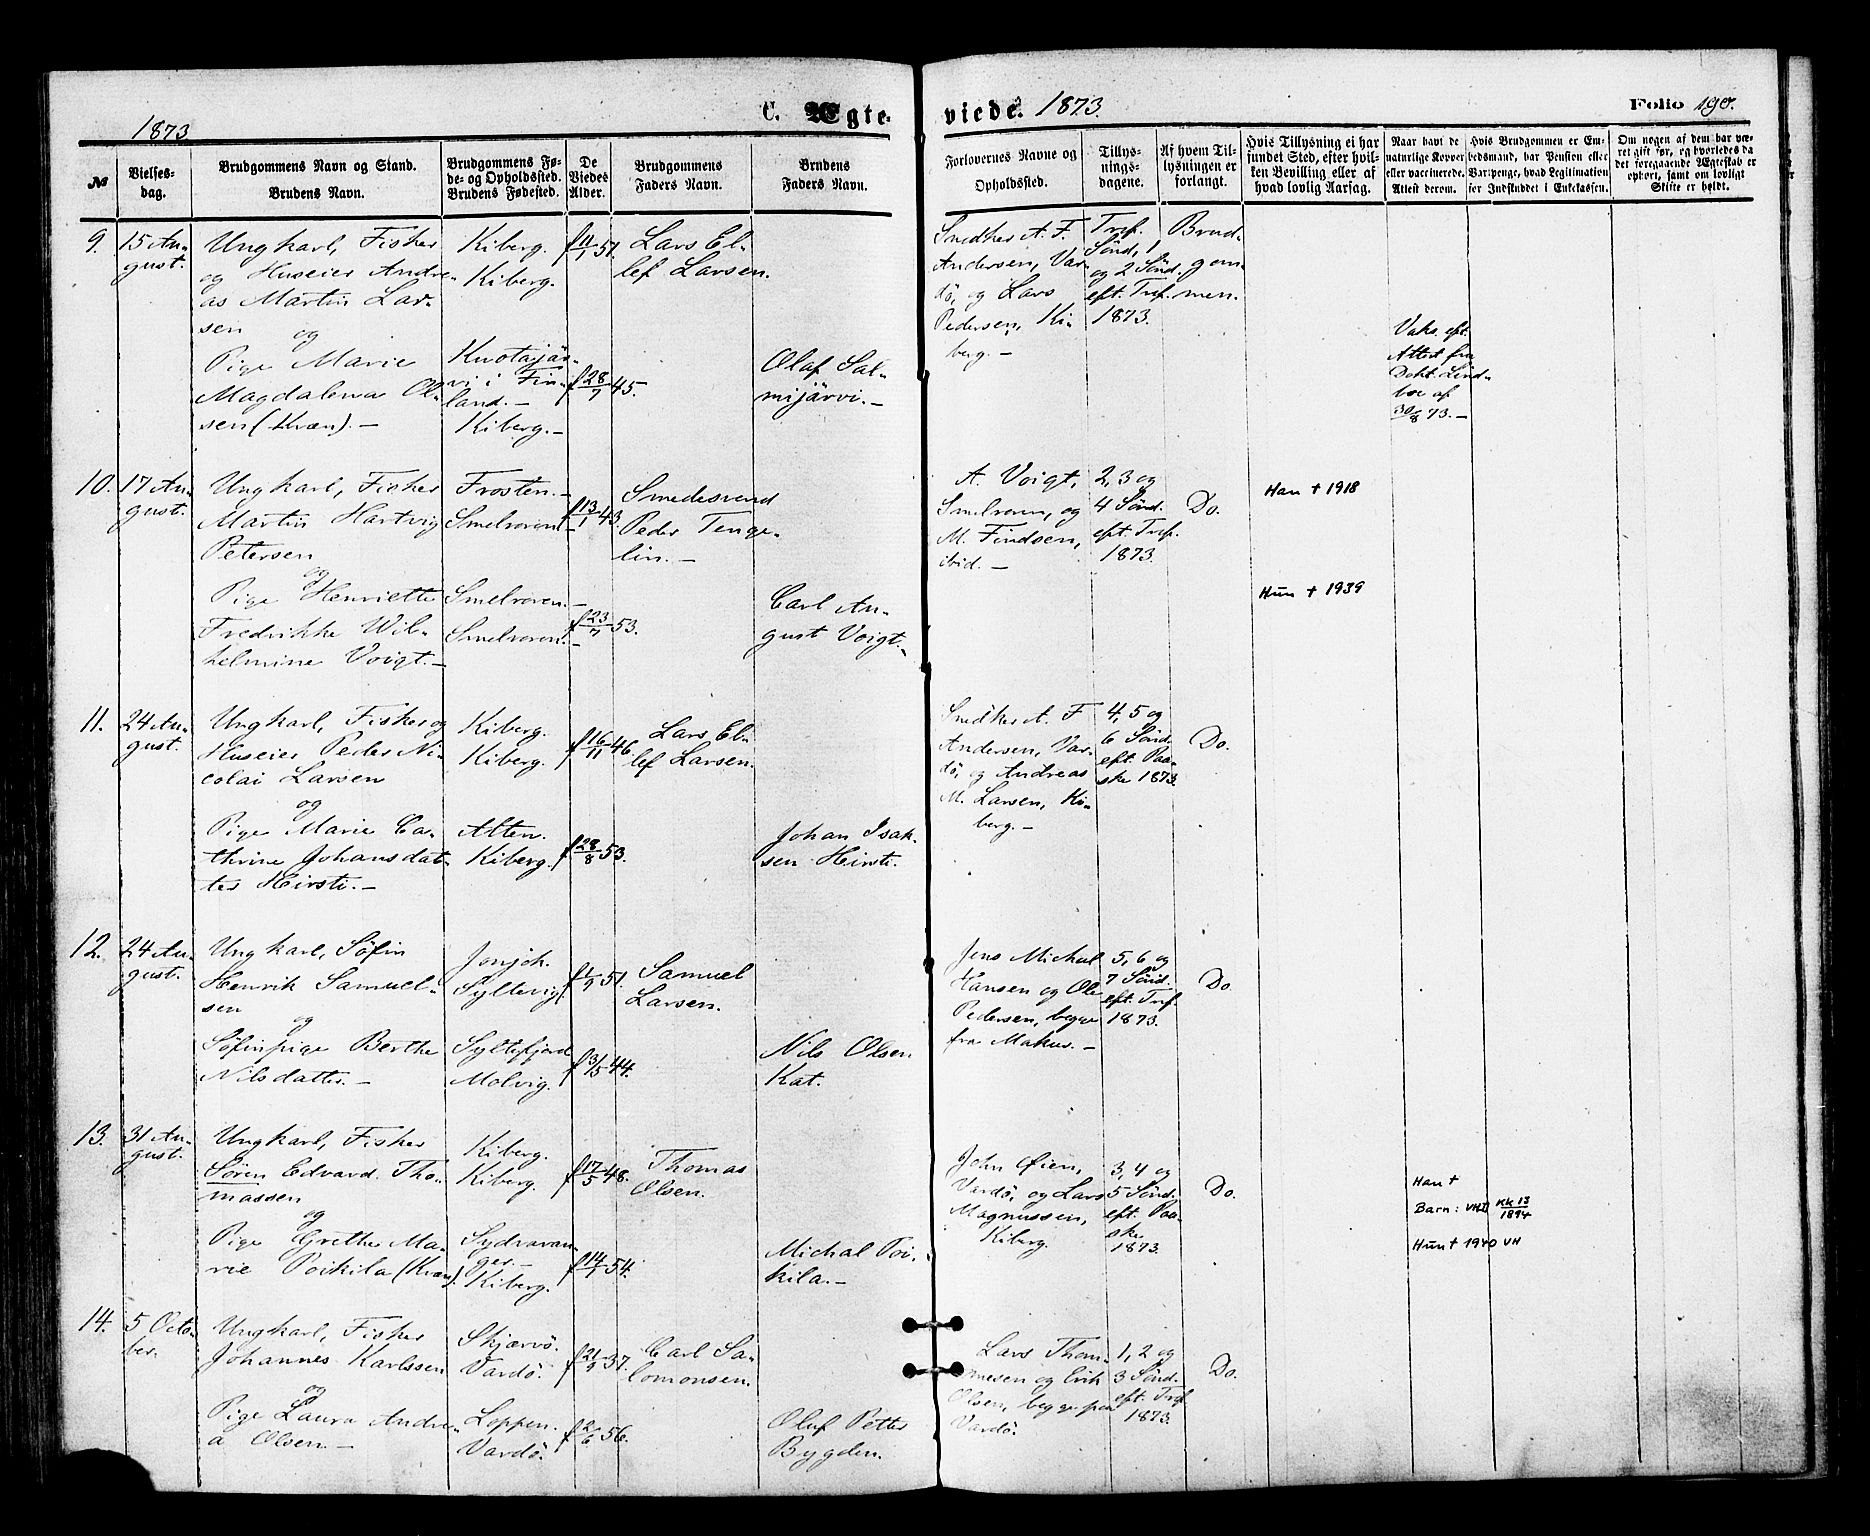 1873
C. Ægte-
viede. 1873.
Folio 190.
№
Vielses-
dag.
Brudgommens Navn og Stand.
Brudens Navn.
Brudgommens Fø-
de- og Opholdssted.
Brudens Fødested.
De
Viedes
Alder.
Brudgommens
Faders Navn.
Brudens
Faders Navn.
Forlovernes Navne og
Opholdssted.
Tillys-
nings-
dagene.
Af hvem Til-
lysningen er
forlangt.
Hvis Tillysning ei har
fundet Sted, efter hvil-
ken Bevilling eller af
hvad lovlig Aarsag.
Naar havt de
naturlige Kopper
eller vaccinerede.
Attest derom.
Hvis Brudgommen er En-
bedsmand, har Pension eller
Vartpenge, hvad Legitimation
for Indskuddet i Enkekassen.
Om nogen af dem har væ-
ret gift før, og hvorledes da
det foregaaende Ægteskab er
ophørt, samt om lovligt
Skifte er holdt.
9.
15 Au-
gust.
Ungkarl, Fisker
og Huseier Andre-
as Martin Lar-
sen
og
Pige Marie
Magdalena Ol-
sen (Kvæn). -
Kiberg.
Kiberg.
Kuotajär-
vi i Fin-
land. -
Kiberg. -
f 11/1 51.
f 28/7 45.
Lars El-
lef Larsen.
Olaf Sal-
mijärvi. -
Snedker A. F.
Andersen, Var-
dö, og Lars
Pedersen, Ki-
berg. -
Tref.
Sönd, 1
og 2 Sönd.
eft. Tref.
1873.
Brud-
gom-
men.
Vaks. eft.
Attest fra
Dokt. Lind-
boe af
30/8 73. -
10.
17 Au-
gust.
Ungkarl, Fisker
Martin Hartvig
Petersen
og
Pige Henriette
Fredrikke Wil-
helmine Voigt. -
Frosten. -
Smelroren. -
Smelroren. -
Smelroren. -
f 13/1 43.
f 23/7 53.
Smedesvend
Peder Tenge-
lin. -
Carl Au-
gust Voigt. -
A. Voigt,
Smelroren, og
M. Findsen,
ibid. -
2, 3 og
4 Sönd.
eft. Tref.
1873.
Do.
Han + 1918
Hun + 1939
11.
24 Au-
gust.
Ungkarl, Fisker og
Huseier Peder Ni-
colai Larsen
og
Pige Marie Ca-
thrine Johansdat-
ter Heirsti. -
Kiberg.
Kiberg.
Alten.
Kiberg.
f 16/11 46.
f 28/8 53.
Lars El-
lef Larsen.
Johan Isak-
sen Heirsti.
Snedker A. F
Andersen, Var-
dö, og Andreas
M. Larsen, Ki-
berg. -
4, 5 og
6 Sönd.
eft. Paa-
ske 1873.
Do.
12.
24 Au-
gust.
Ungkarl, Söfin
Henrik Samuel-
sen
og
Söfinpige Berthe
Nilsdatter. -
Syltevig.
Syltefjord
Molvig.
f 1/9 51.
f 3/5 44.
Samuel
Larsen.
Nils Olsen
Kat.
Jens Michal
Hansen og Ole
Pedersen, begge
fra Makur. -
5, 6 og
7 Sönd.
eft. Tref.
1873.
Do.
13.
31 Au-
gust.
Ungkarl, Fisker
Sören Edvard Tho-
massen
og
Pige Grethe Ma-
rie Poikila (Kvæn).
Kiberg.
Kiberg.
Sydvaran-
ger. -
Kiberg.
f 17/5 48.
f 14/1 54.
Thomas
Olsen.
Michal Poi-
kila. -
John Øien,
Vardö, og Lars
Magnussen,
Kiberg.
3, 4 og
5 Sönd.
eft. Paa-
ske
1873.
Do.
Han +
Barn: VHI KK 13/1894
Hun + 1940 VH
14.
5 Octo-
ber.
Ungkarl, Fisker
Johannes Karlssen
og
Pige Laura Andre-
a Olsen. -
Skjærvö.
Vardö.
Loppen.
Vardö.
f 21/9 37.
f 2/6 56.
Carl Sa-
lomonsen.
Oluf Petter
Bygden.
Lars Thom-
mesen og Erik
Olsen, begge paa
Vardö.
1, 2 og
3 Sönd.
eft. Tref.
1873.
Do.